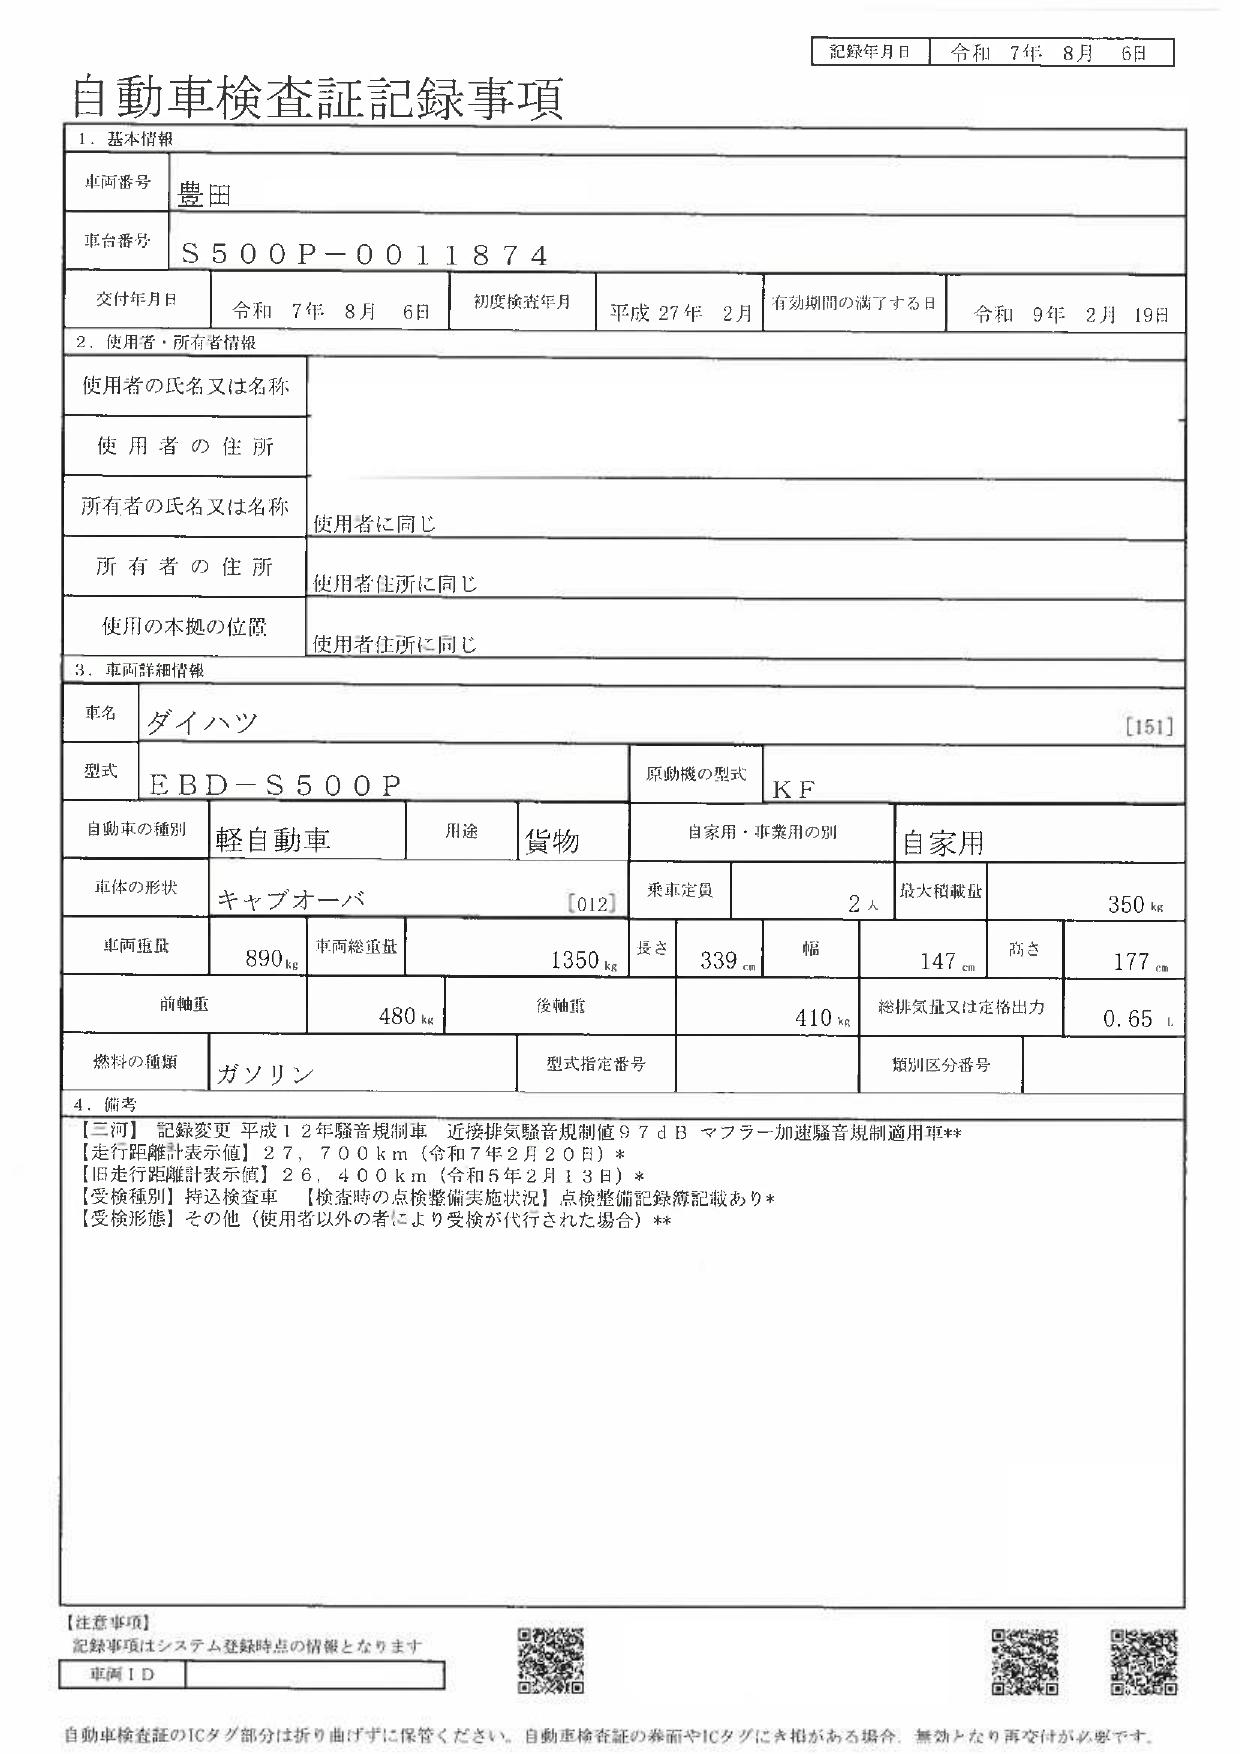 記録年月日 令和 7年 8月 6日
自動車検査証記録事項
1. 基本情報
車両番号 豊田
車台番号 S500P-0011874
交付年月日 令和 7年 8月 6日 初度検査年月 平成 27年 2月 有効期間の満了する日 令和 9年 2月 19日
2. 使用者・所有者情報
使用者の氏名又は名称
使用者の住所
所有者の氏名又は名称 使用者に同じ
所有者の住所 使用者住所に同じ
使用の本拠の位置 使用者住所に同じ
3. 車両詳細情報
車名 ダイハツ [151]
型式 EBD-S500P 原動機の型式 KF
自動車の種別 軽自動車 用途 貨物 自家用・事業用の別 自家用
車体の形状 キャブオーバ [012] 乗車定員 2人 最大積載量 350kg
車両重量 890kg 車両総重量 1350kg 長さ 339cm 幅 147cm 高さ 177cm
前軸重 480kg 後軸重 410kg 総排気量又は定格出力 0.65 L
燃料の種類 ガソリン 型式指定番号 類別区分番号
4. 備考
【三河】 記録変更 平成12年騒音規制車 近接排気騒音規制値97dB マフラー加速騒音規制適用車**
【走行距離計表示値】27,700km(令和7年2月20日)*
【旧走行距離計表示値】26,400km(令和5年2月13日)*
【受検種別】持込検査車 【検査時の点検整備実施状況】点検整備記録簿記載あり*
【受検形態】その他(使用者以外の者により受検が代行された場合)**
【注意事項】
記録事項はシステム登録時点の情報となります
車両ID
自動車検査証のICタグ部分は折り曲げずに保管ください。自動車検査証の券面やICタグにき損がある場合、無効となり再交付が必要です。